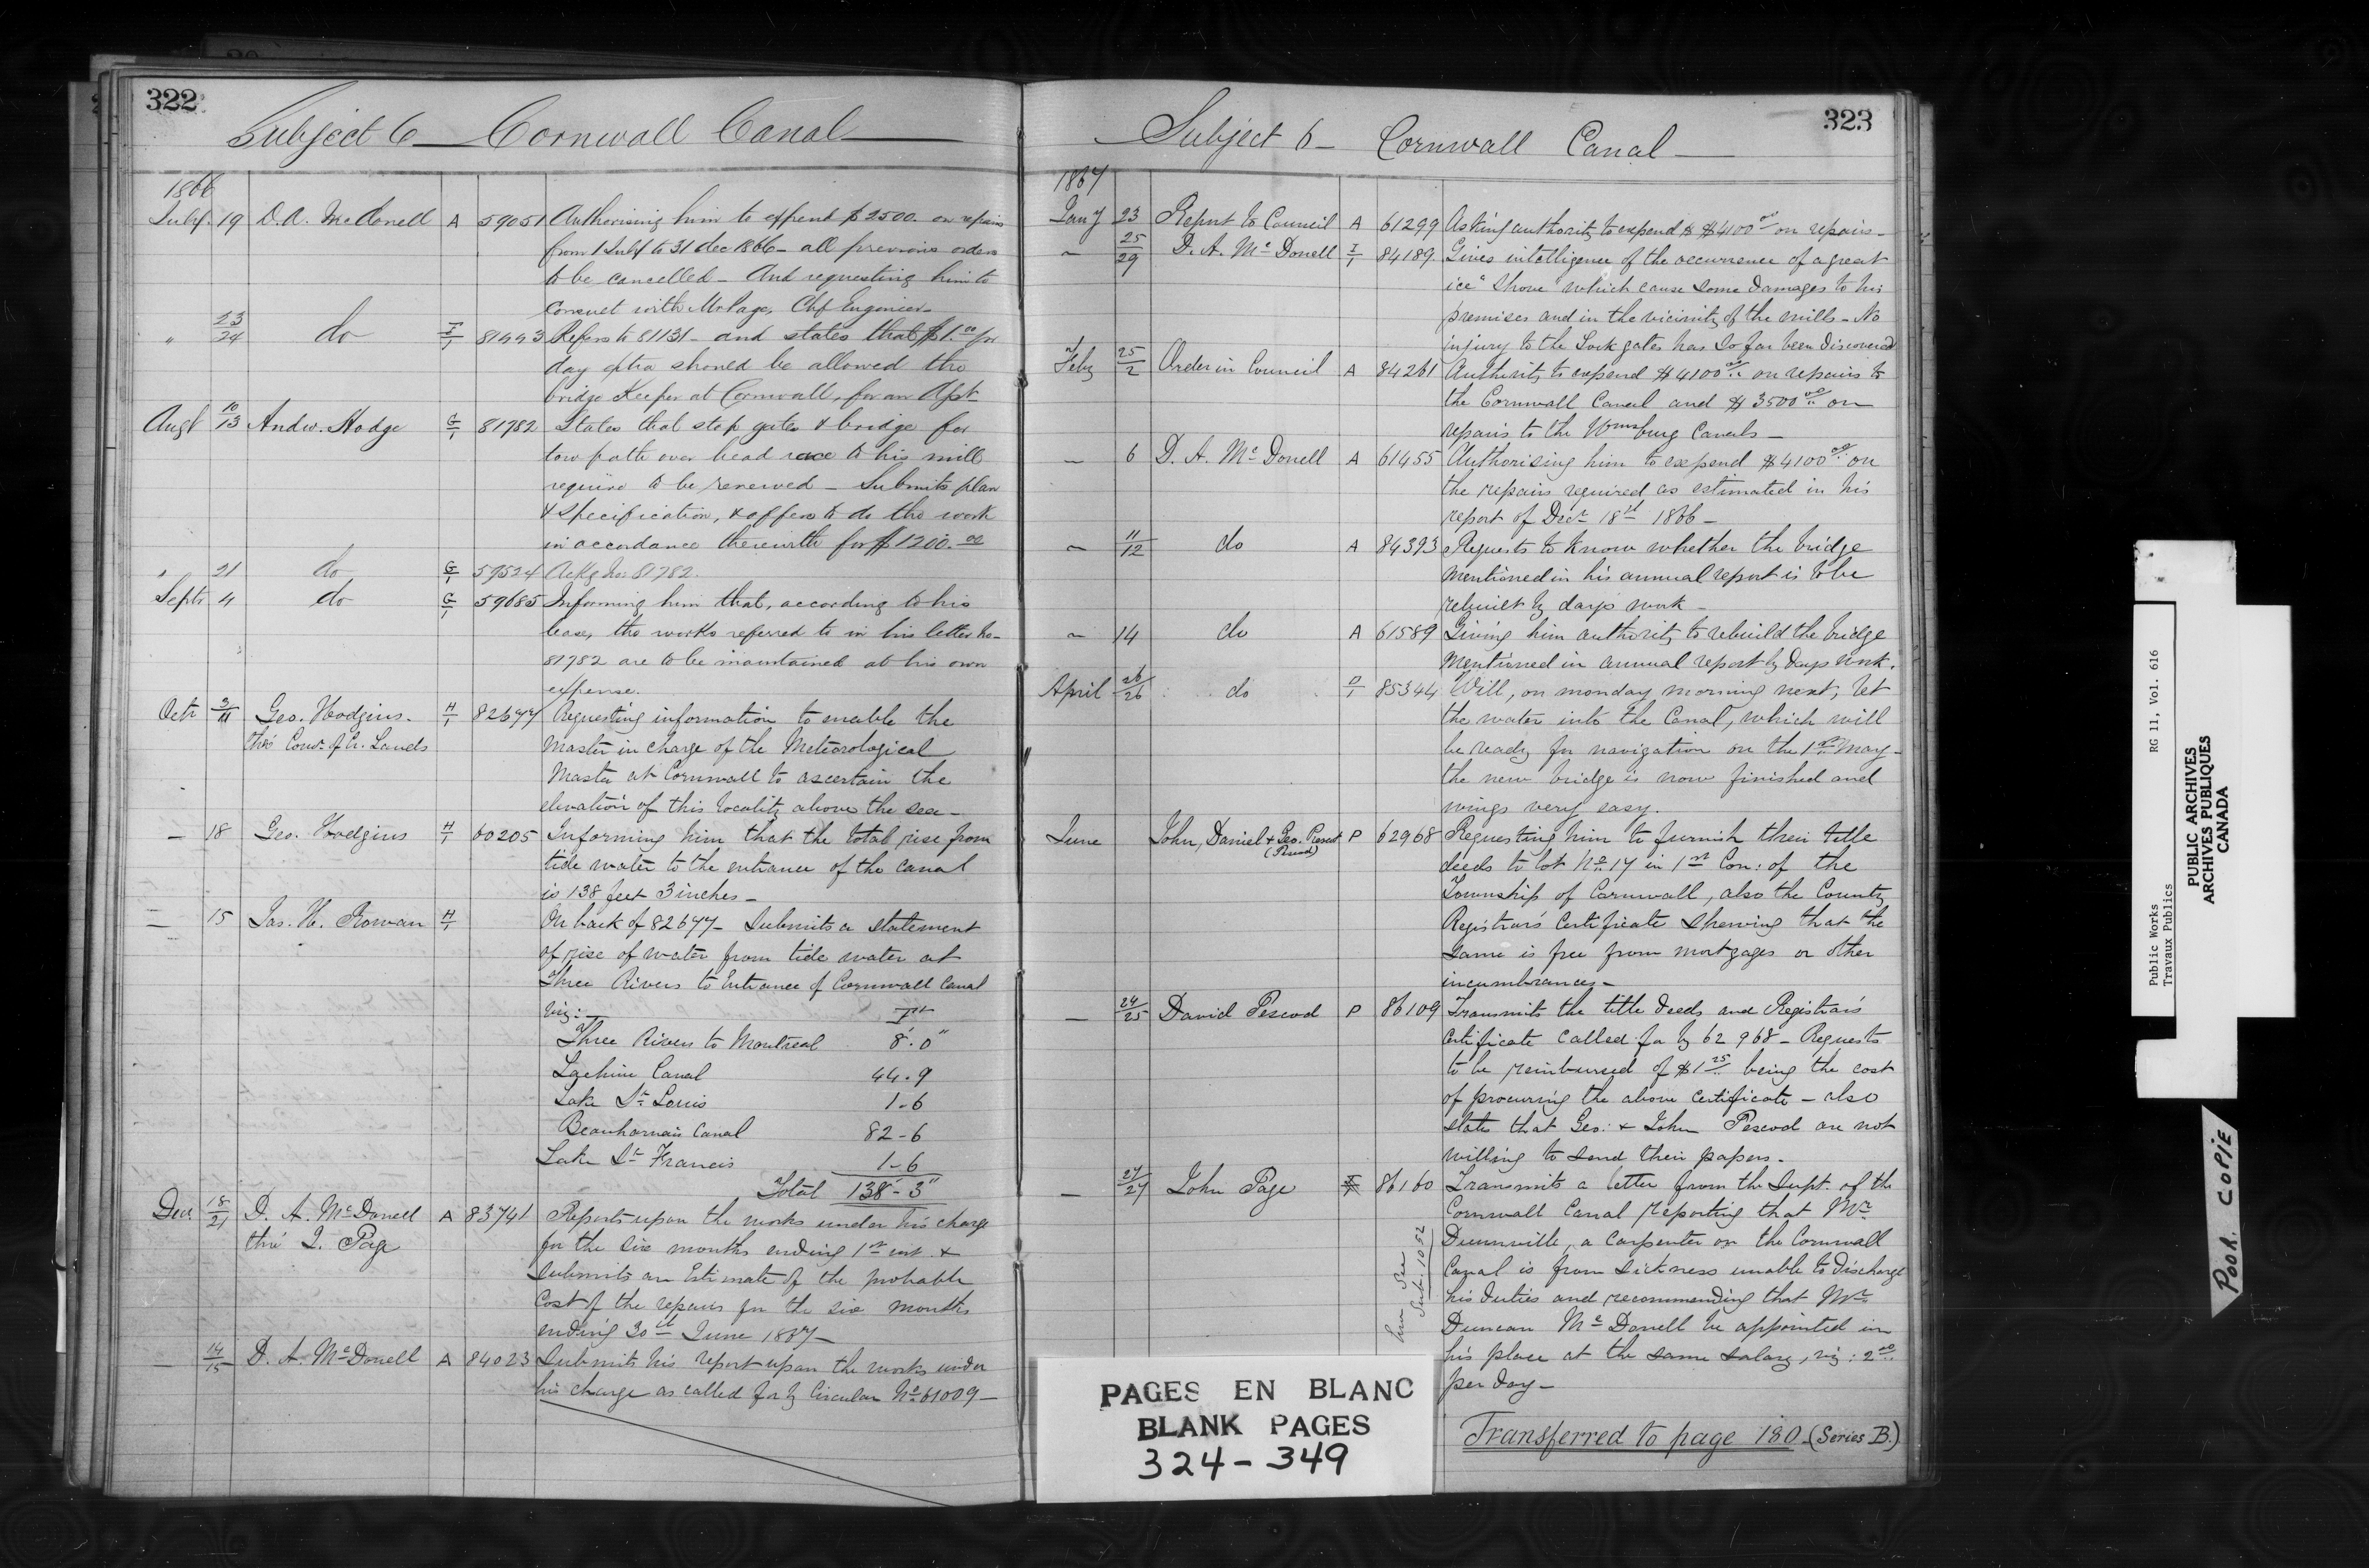 322
Subject 6 — Cornwall Canal
1866
July 19 D. A. McDonell A 59051 Authorising him to expend $2500. on repairs
from 1 July to 31 dec 1866 - all previous orders
to be cancelled - And requesting him to
consult with Mr Page, Chf Engineer
" 23/24 do I/1 81493 Refers to 81131 - and states that $1.00 pr
day extra should be allowed the
bridge Keeper at Cornwall, for an Asst
Augt 10/13 Andw. Hodge G/1 81782 States that stop gates & bridge for
tow path over head race to his mill
require to be renewed - Submits plan
& specification, & offers to do the work
in accordance therewith for $1200.00
" 21 do G/1 59524 Ackg No: 81782.
Septr 4 do G/1 59685 Informing him that, according to his
lease, the works referred to in his letter No-
81782 are to be maintained at his own
expense.
Octr 3/11 Geo. Hodgins. H/1 82677 Requesting information to enable the
thro' Comr. of Cr. Lands Master in charge of the Meteorological
Master at Cornwall to ascertain the
elevation of this locality above the sea -
— 18 Geo. Hodgins H/1 60205 Informing him that the total rise from
tide water to the entrance of the canal
is 138 feet 3 inches -
— 15 Jas. H. Rowan H/1 On back of 82677 - Submits a statement
of rise of water from tide water at
Three Rivers to Entrance of Cornwall Canal
viz: - Ft
Three Rivers to Montreal 8'. 0"
Lachine Canal 44 . 9
Lake St Louis 1 - 6
Beauharnais Canal 82 - 6
Lake St Francis 1 - 6
Total 138' - 3"
Decr 18/21 D. A. McDonell A 83741 Reports upon the works under his charge
thro' J. Page for the six months ending 1st inst. &
submits an Estimate of the probable
Cost of the repairs for the six months
ending 30th June 1867 -
— 14/15 D. A. McDonell A 84023 Submits his report upon the works under
his charge as called for by Circular No 61009 -
323
Subject 6 - Cornwall Canal —
1867
Jany 23 Report to Council A 61299 Asking authority to expend $ $4100.00 on repairs -
— 25/29 D. A. McDonell I/1 84189 Gives intelligence of the occurrence of a great
ice "Shove" which cause some damages to his
premises and in the vicinity of the mills - No
injury to the Lock gates has so far been discovered
Feby 25/2 Order in Council A 84261 Authority to expend $4100.00 on repairs to
the Cornwall Canal and $3500.00 on
repairs to the Wmsburg Canals -
— 6 D. A. McDonell A 61455 Authorising him to expend $4100.00 on
the repairs required as estimated in his
report of Decr 18th 1866 -
— 11/12 do A 84393 Requests to know whether the bridge
mentioned in his annual report is to be
rebuilt by days work -
— 14 do A 61589 Giving him authority to rebuild the bridge
mentioned in annual report by days work.
April 26/26 do D/1 85344 Will, on monday morning next, let
the water into the Canal, which will
be ready for navigation on the 1st May -
the new bridge is now finished and
swings very easy.
June John, Daniel & Geo. Pescod P 62968 Requesting him to furnish their title
(Pescod)
deeds to lot No 17 in 1st Con: of the
Township of Cornwall, also the County
Registrar's Certificate shewing that the
same is free from mortgages or other
incumbrances -
— 24/25 David Pescod P 86109 Transmits the title deeds and Registrar's
Certificate called for by 62968 - Requests
to be reimbursed of $1.25 being the cost
of procuring the above certificate - also
states that Geo: & John Pescod are not
willing to send their papers -
— 27/27 John Page 86160 Transmits a letter from the Supt. of the
Cornwall Canal reporting that Mr
Dunnville, a Carpenter on the Cornwall
Canal is from sickness unable to discharge
his duties and recommending that Mr
Duncan McDonell be appointed in
his place at the same salary, viz: 2.00
per day -
See
Sub. 1052
Transferred to page 180 - (Series B.)
PAGES EN BLANC
BLANK PAGES
324 - 349
Public Works RG 11, Vol. 616
Travaux Publics
PUBLIC ARCHIVES
ARCHIVES PUBLIQUES
CANADA
POOR COPIE